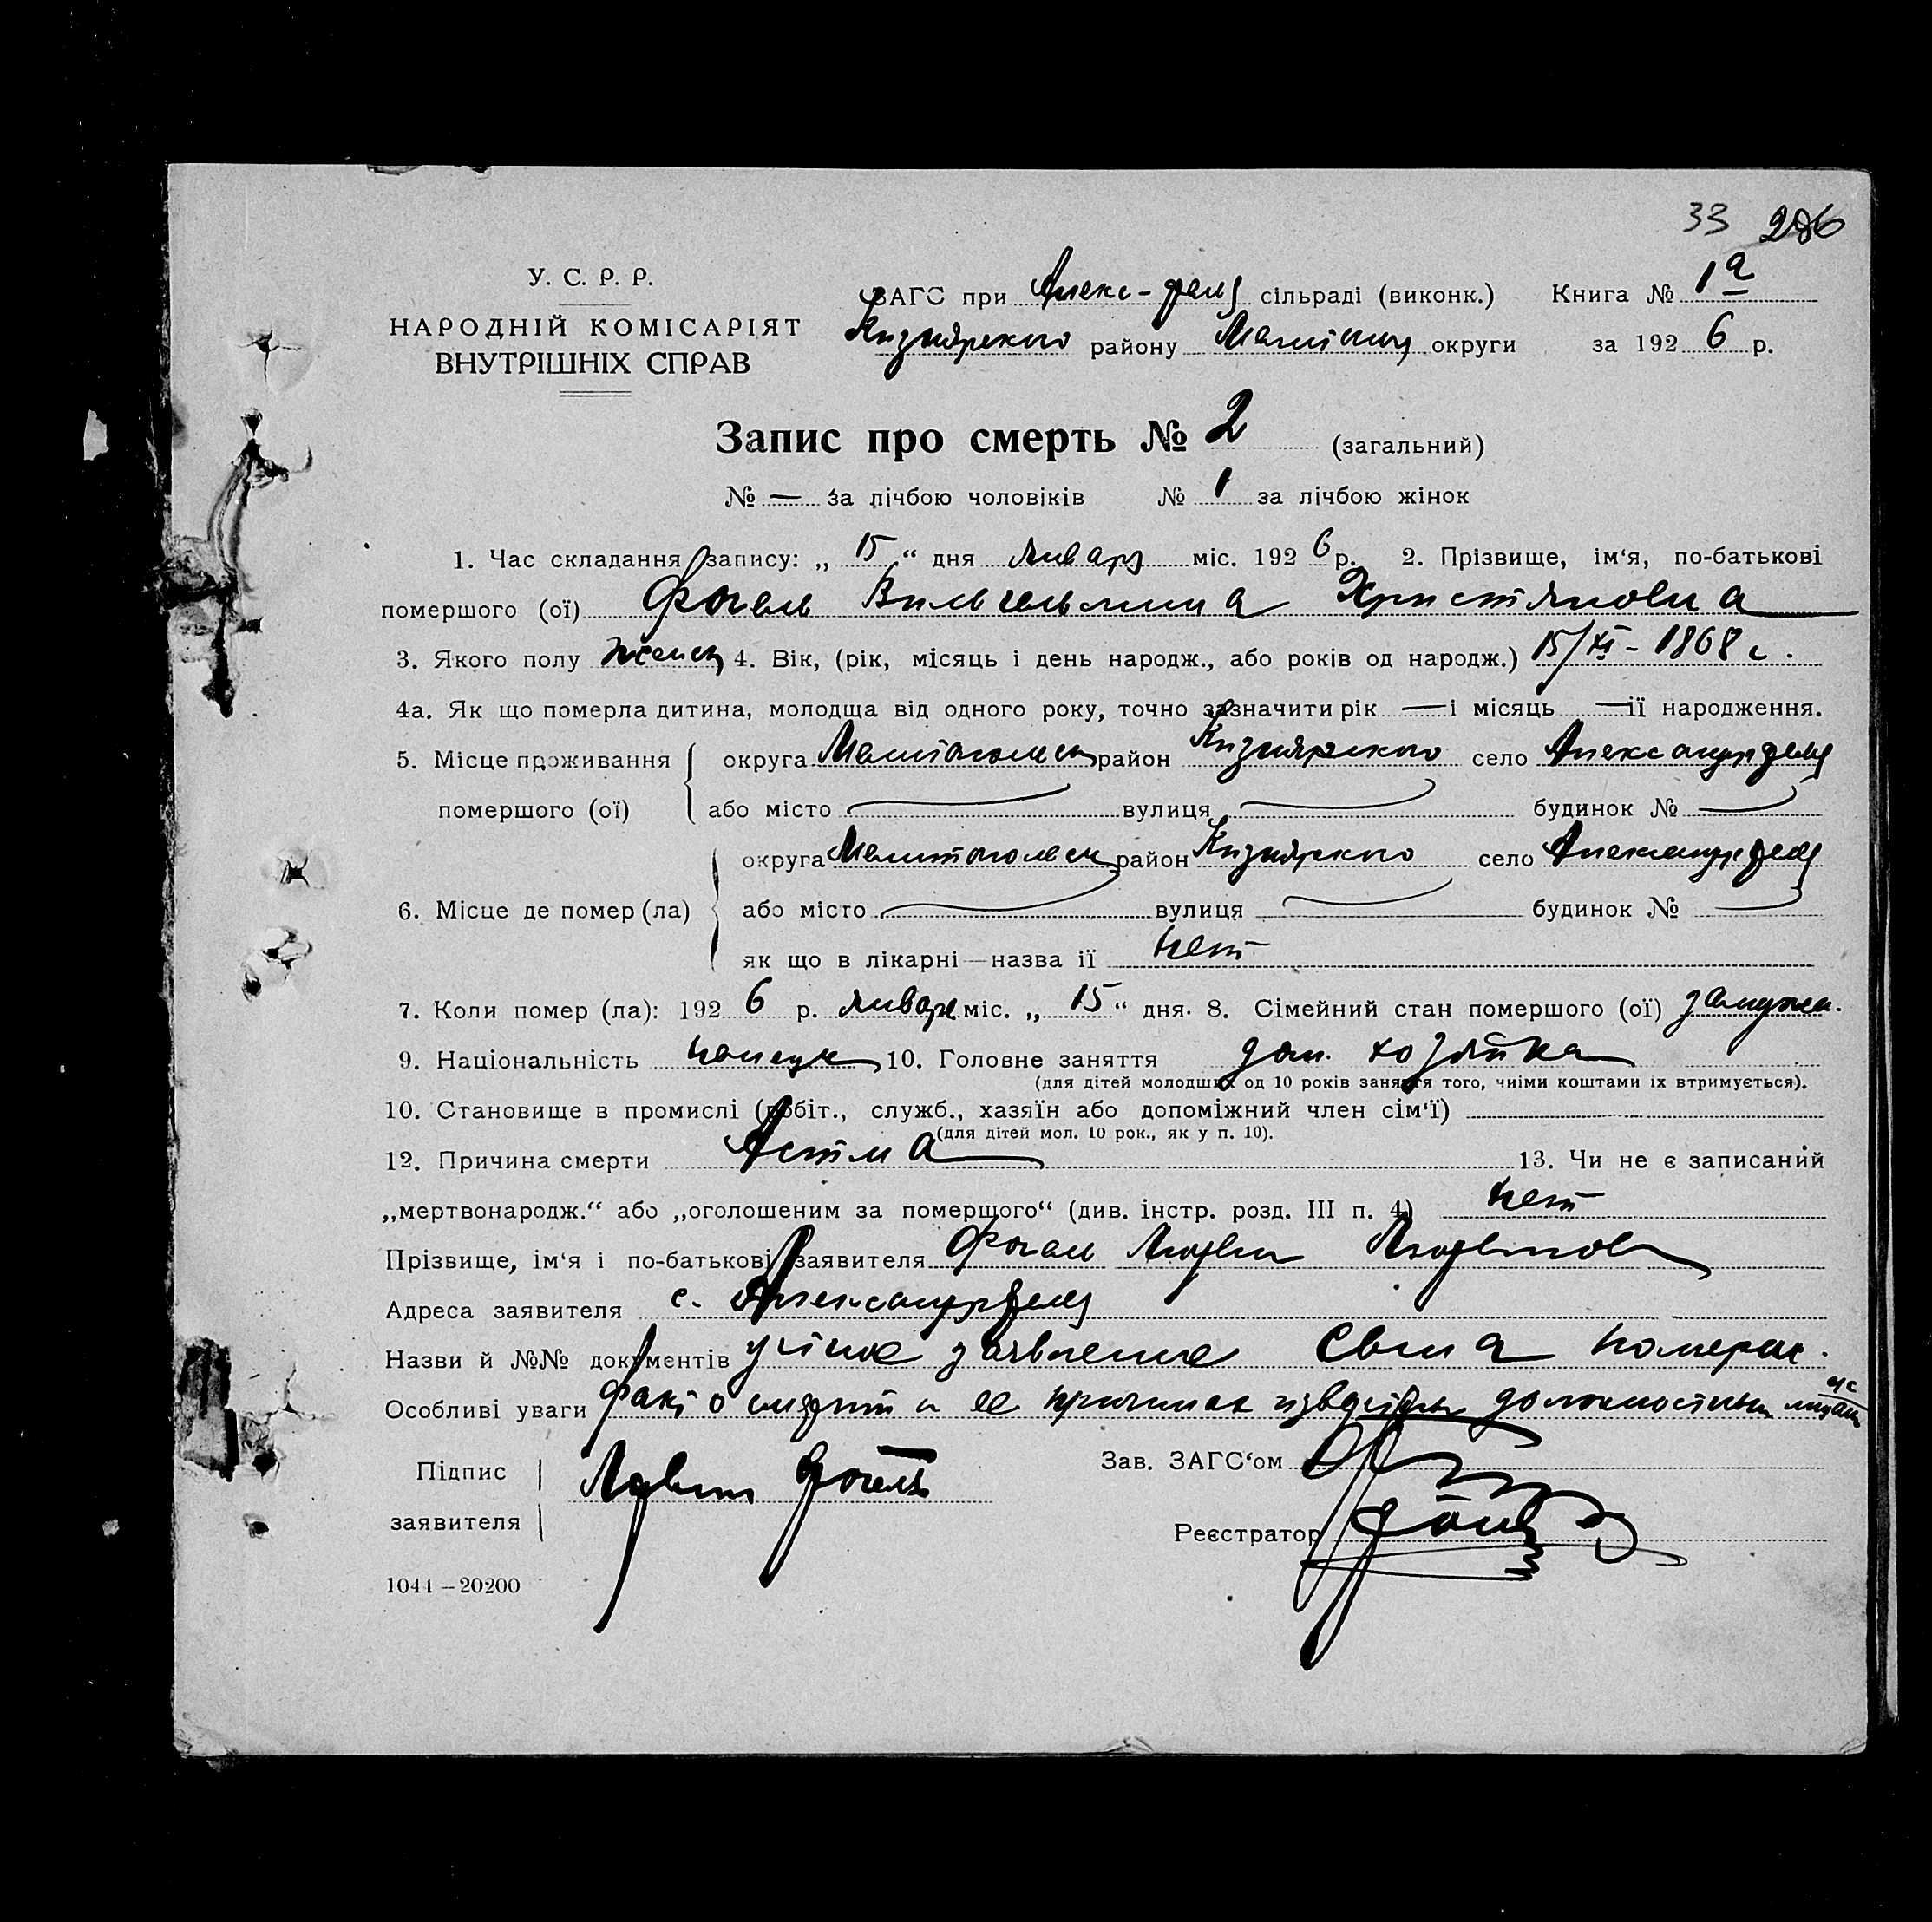 33 286
У. С. Р. Р.
НАРОДНІЙ КОМІСАРІЯТ
ВНУТРІШНІХ СПРАВ
ЗАГС при Алекс-фельд сільраді (виконк.) Книга № 1а
Кизиярского району округи за 1926 р.
Запис про смерть № 2 (загальний)
№ — за лічбою чоловіків № 1 за лічбою жінок
1. Час складання запису: „15“ дня января міс. 1926 р. 2. Прізвище, ім‘я, по-батькові
помершого (ої) Фогель Вильгельмина Христяновна
3. Якого полу женск 4. Вік, (рік, місяць і день народж., або років од народж.) 15/XI - 1868 г.
4а. Як що померла дитина, молодща від одного року, точно зазначити рік — і місяць — її народження.
5. Місце проживання округа Мелитопольск район Кизиярского село Александрфельд
помершого (ої) або місто вулиця будинок №
округа Мелитопольск район Кизиярского село Александрфельд
6. Місце де помер (ла) або місто вулиця будинок №
як що в лікарні — назва її нет
7. Коли помер (ла): 1926 р. января міс. „15“ дня. 8. Сімейний стан помершого (ої) замужн.
9. Національність немецк 10. Головне заняття дом. хозяйка
(для дітей молодших од 10 років заняття того, чиїми коштами їх втримується).
10. Становище в промислі (робіт., служб., хазяїн або допоміжний член сім‘ї)
(для дітей мол. 10 рок., як у п. 10).
12. Причина смерти Астма 13. Чи не є записаний
„мертвонародж.“ або „оголошеним за померщого“ (див. інстр. розд. III п. 4) нет
Прізвище, ім‘я і по-батькові заявителя Фогель
Адреса заявителя с. Александрфельд
Назви й №№ документів устное заявление
Особливі уваги факт о смерти и ее причинах известны должностным лицам
Підпис Фогель Зав. ЗАГС‘ом
заявителя Реєстратор
1041 – 20200